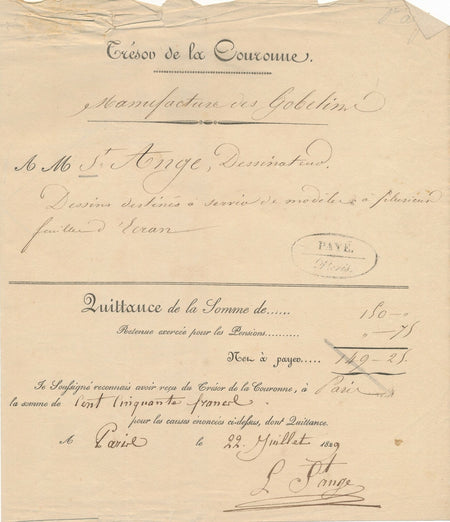 Trésor de la Couronne.
Manufacture des Gobelins
A M St. Ange, Dessinateur.
Dessins destinés à servir de modèles à plusieurs
feuilles d'Ecran
PAYÉ.
Paris.
Quittance de la Somme de...... 150 - "
Retenue exercée pour les Pensions.......... " - 75
Net à payer..... 149 - 25
Je Soussigné reconnais avoir reçu du Trésor de la Couronne, à Paris
la somme de Cent Cinquante francs
pour les causes énoncées ci-dessus, dont Quittance.
A Paris le 22 Juillet 1829
L St ange